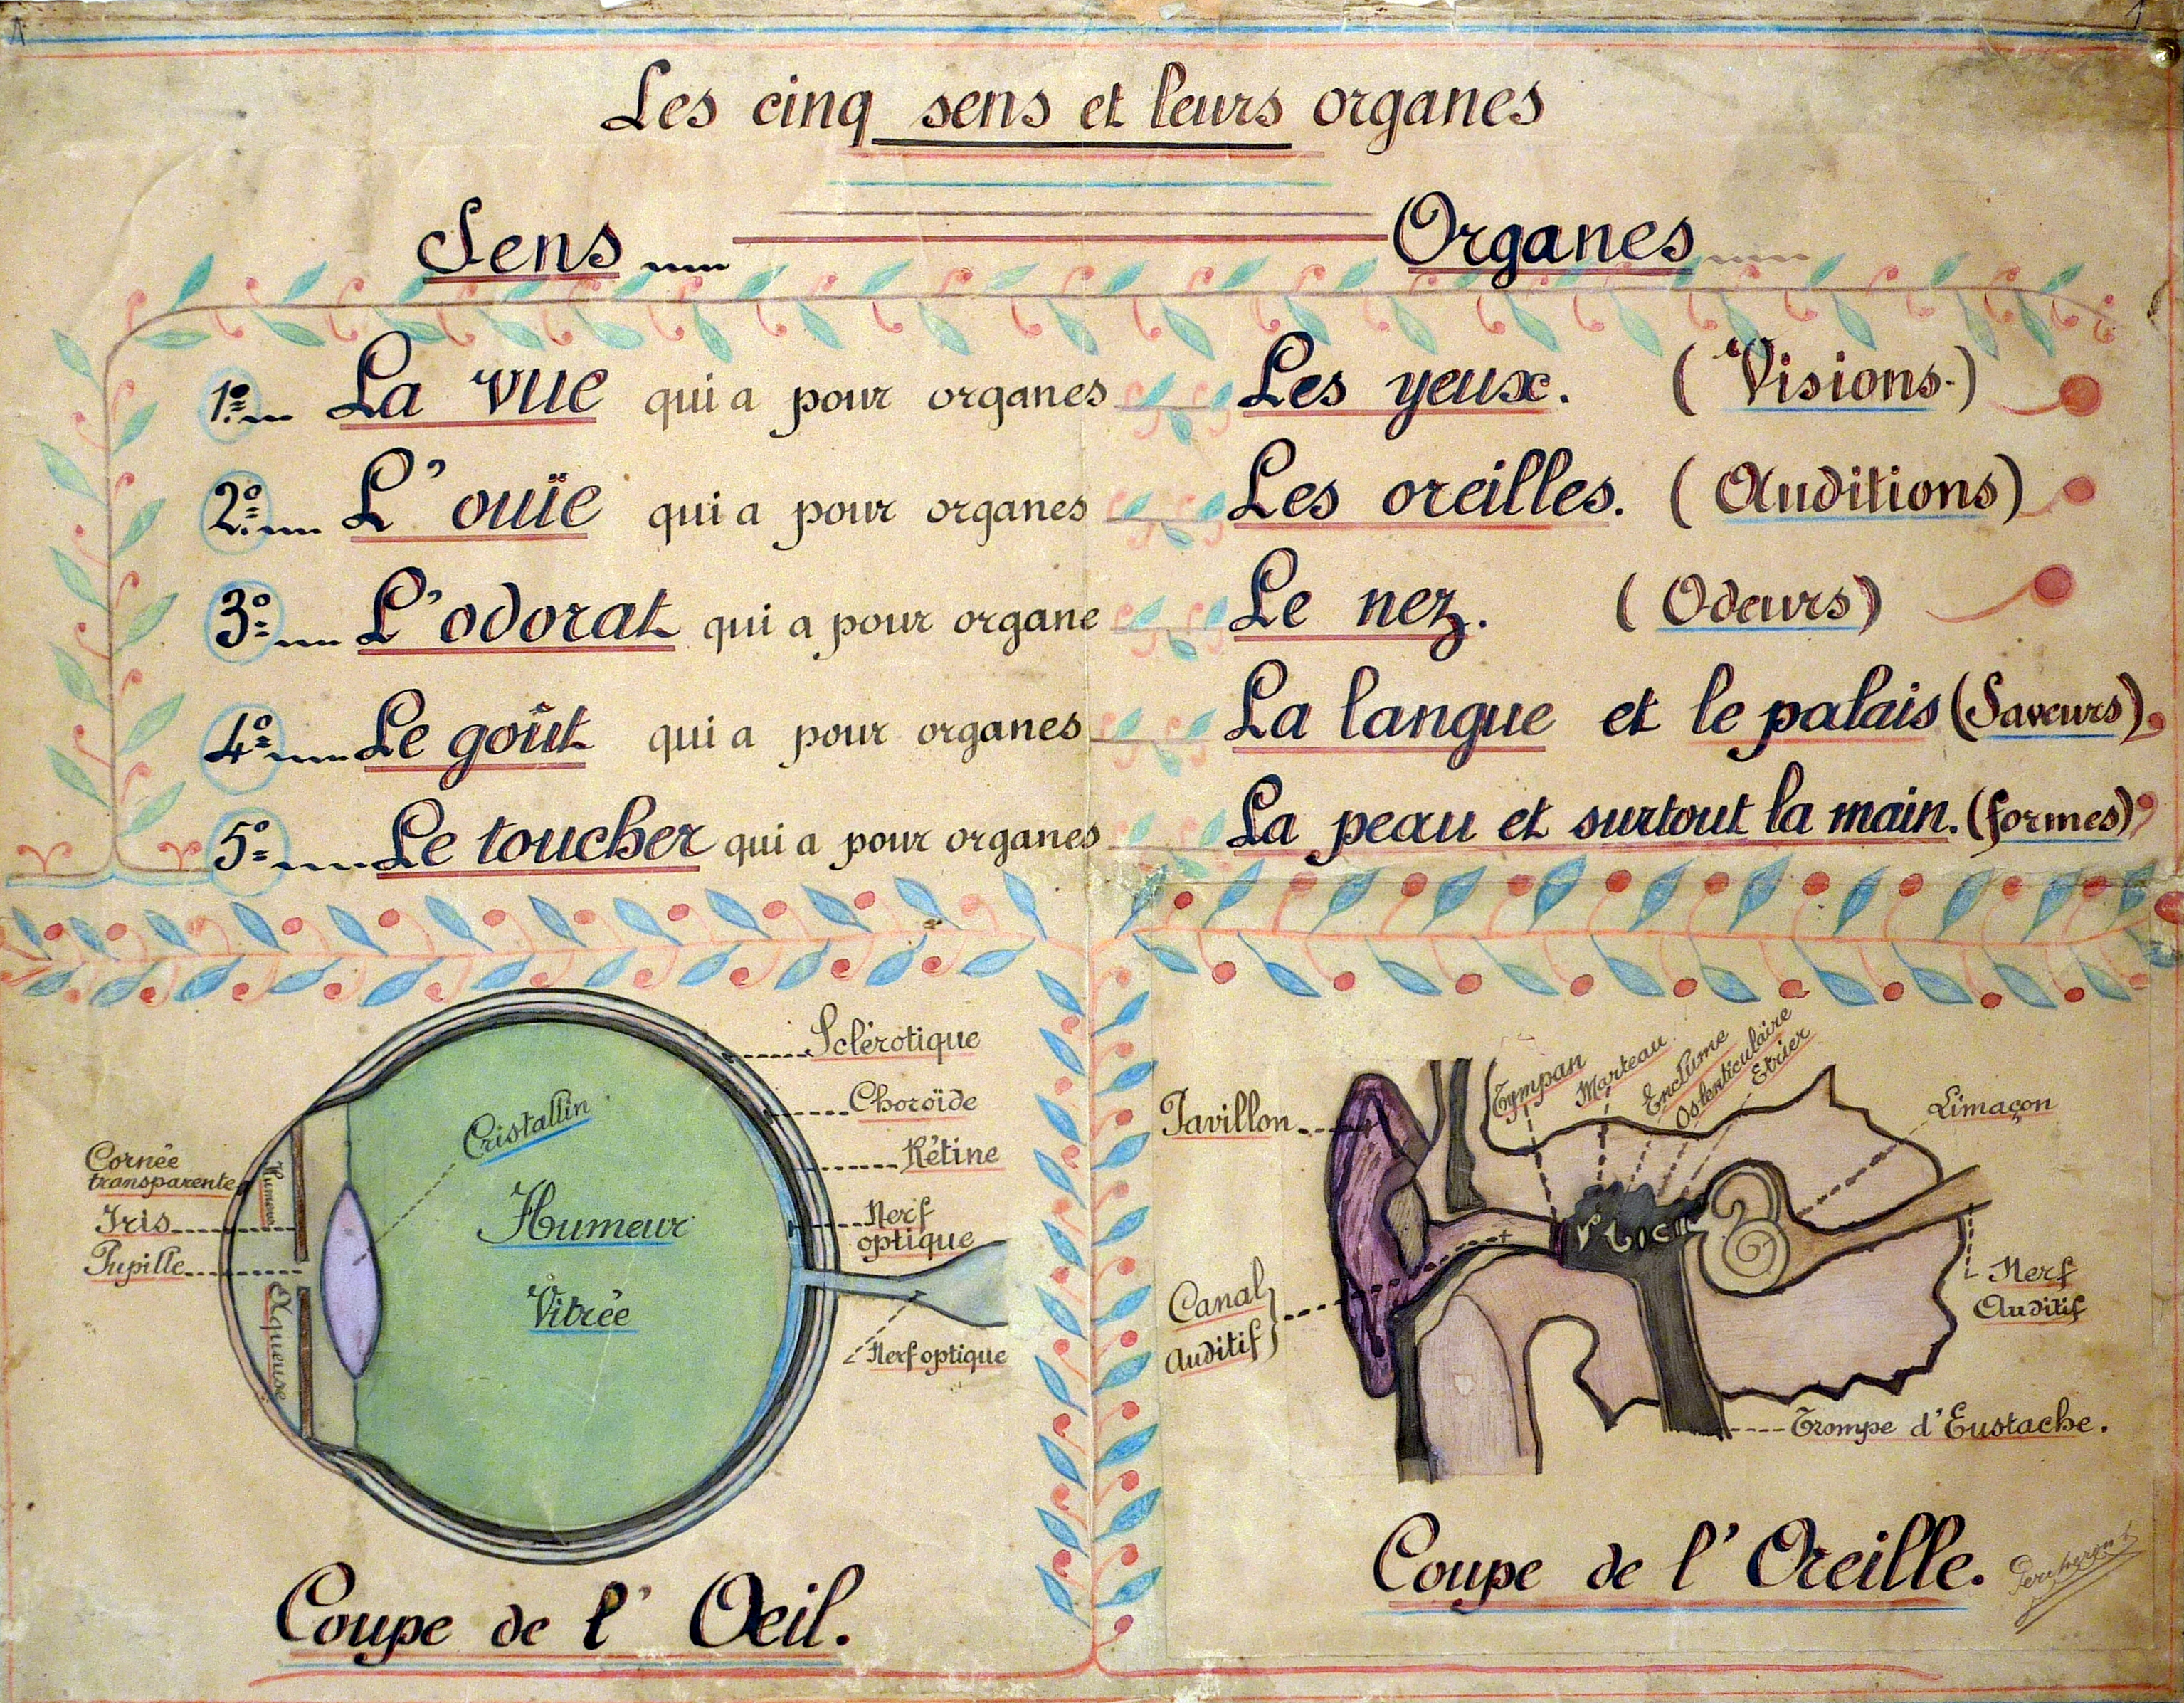 Les cinq sens et leurs organes
Sens
Organes
1º La vue qui a pour organes Les yeux. (Visions.)
2º L'ouïe qui a pour organes Les oreilles. (Auditions)
3º L'odorat qui a pour organe Le nez. (Odeurs)
4º Le goût qui a pour organes La langue et le palais (Saveurs)
5º Le toucher qui a pour organes La peau et surtout la main. (formes)
Sclérotique
Choroïde
Rétine
Nerf
optique
Nerf optique
Cristallin
Humeur
Vitrée
Cornée
transparente
Iris
Pupille
Humeur
Aqueuse
Coupe de l'Oeil.
Pavillon
Tympan
Marteau
Enclume
Os lenticulaire
Etrier
Limaçon
Canal
Auditif
Nerf
Auditif
Trompe d'Eustache.
Coupe de l'Oreille.